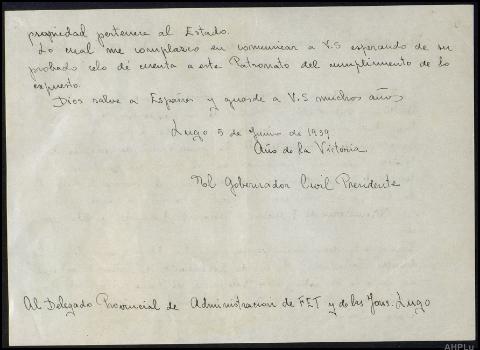 propiedad pertenece al Estado.
Lo cual me complazco en comunicar a V.S esperando de su
probado celo dé cuenta a este Patronato del cumplimiento de lo
expuesto.
Dios salve a España y guarde a V.S muchos años
Lugo 5 de Junio de 1939
Año de la Victoria
El Gobernador Civil Presidente
Al Delegado Provincial de Administracion de FET y de las Jons. Lugo
AHPLu